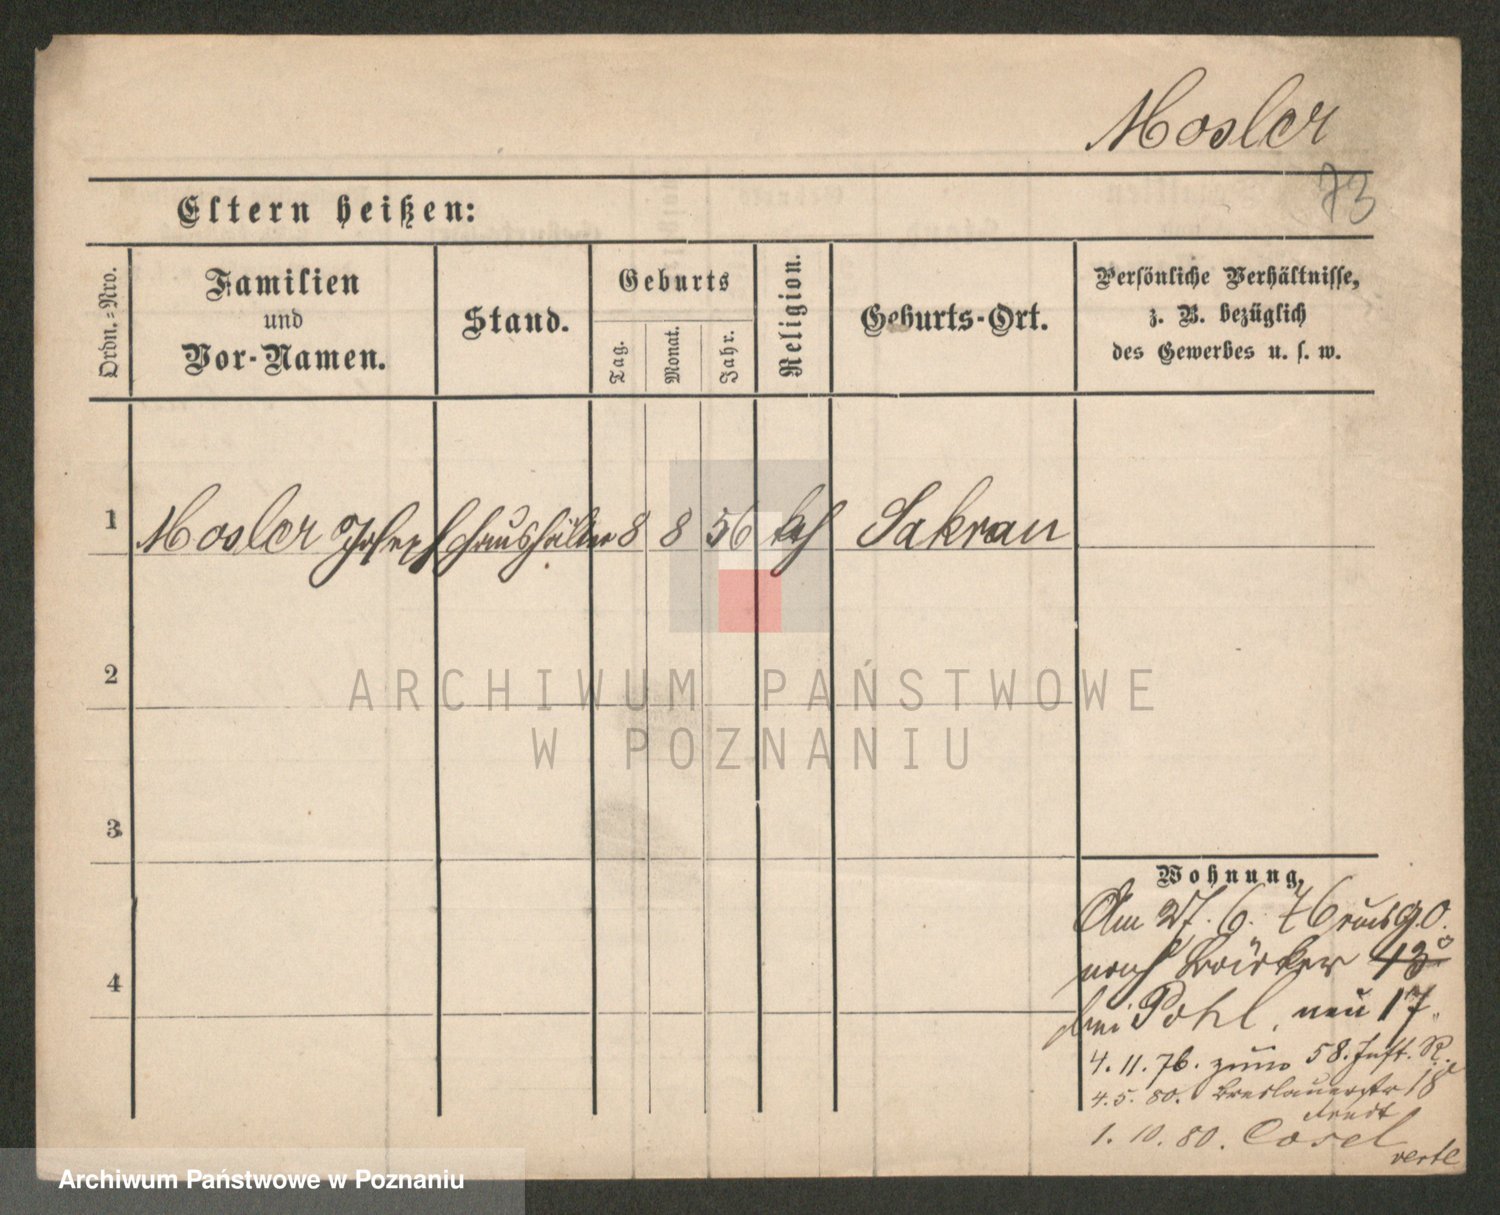 Mosler
73
Eltern heißen:
Ordn.-Nro.
Familien
und
Vor-Namen.
Stand.
Geburts
Tag.
Monat.
Jahr.
Religion.
Geburts-Ort.
Persönliche Verhältnisse,
z. B. bezüglich
des Gewerbes u. s. w.
1 Mosler Joseph Haushälter 8 8 56 kath Sakrau
2
3
4
Wohnung.
Am 27. 6. 76
nach Bäcker
bei Pohl, neu 17
4. 11. 76. zum 58. Inft. R.
4. 5. 80. Breslauerstr 18
Arndt
1. 10. 80. Cosel
verte
ARCHIWUM PAŃSTWOWE
W POZNANIU
Archiwum Państwowe w Poznaniu